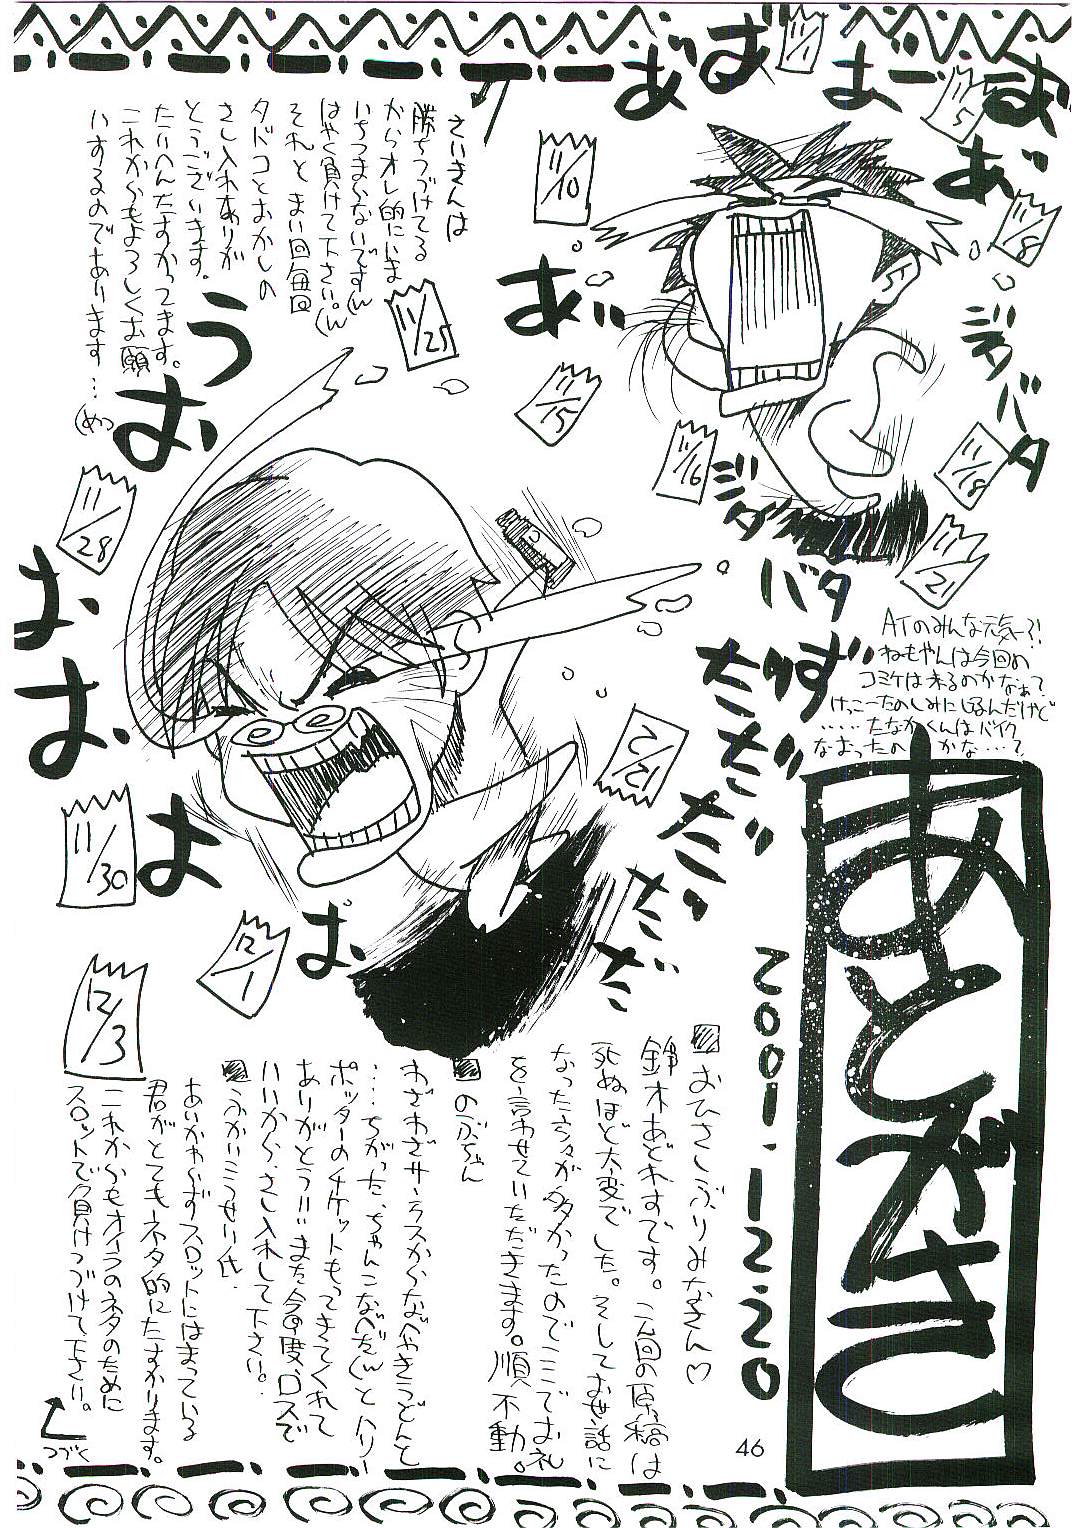 あとがき
2001.12.20
ATのみんな元気ー?!
ねもやんは今回の
コミケは来るのかなぁて
けっこーたのしみにしてるんだけど
……たなかくんはバイク
なおったの かな…?
おひさしぶりみなさん♡
鈴木あどれすです。今回の原稿は
死ぬほど大変でした。そしてお世話に
なった方々が多かったのでここでお礼
を言わせていただきます。順不動。
のぶちゃん
わざわざサーラスからなべやきうどんと
…ちがった、ちゃんこなべだ(ん)とハリー
ポッターのチケットもってきてくれて
ありがとういいまた今度、ロスで
いいから、さし入れして下さい。
ふかいこうせい氏.
あいかわらずスロットにはまっている
君がとてもネタ的にたすかります。
これからもオイラのネタのために
スロットで負けつづけて下さい。
つづく
さいきんは
勝ちつづけてる
からオレ的には
いちつまらないですん
はやく負けて下さい。ん
それと まい回毎回
タドコとおかしの
さし入れありが
とうございます。
たいへんたすかってます。
これからもよろしくお願
いするのであります…
(めっ)
あ゛ば
ま゛ー
お
あ゛
あ゛
ジタバタ
ジタ
バタ
たたず
ただだ
だだ
たただ
だ
う
お
お
お
よ
ぱ
11/1
11/5
11/8
11/10
11/15
11/16
11/18
11/21
11/25
11/28
11/30
12/1
12/3
12/21
46